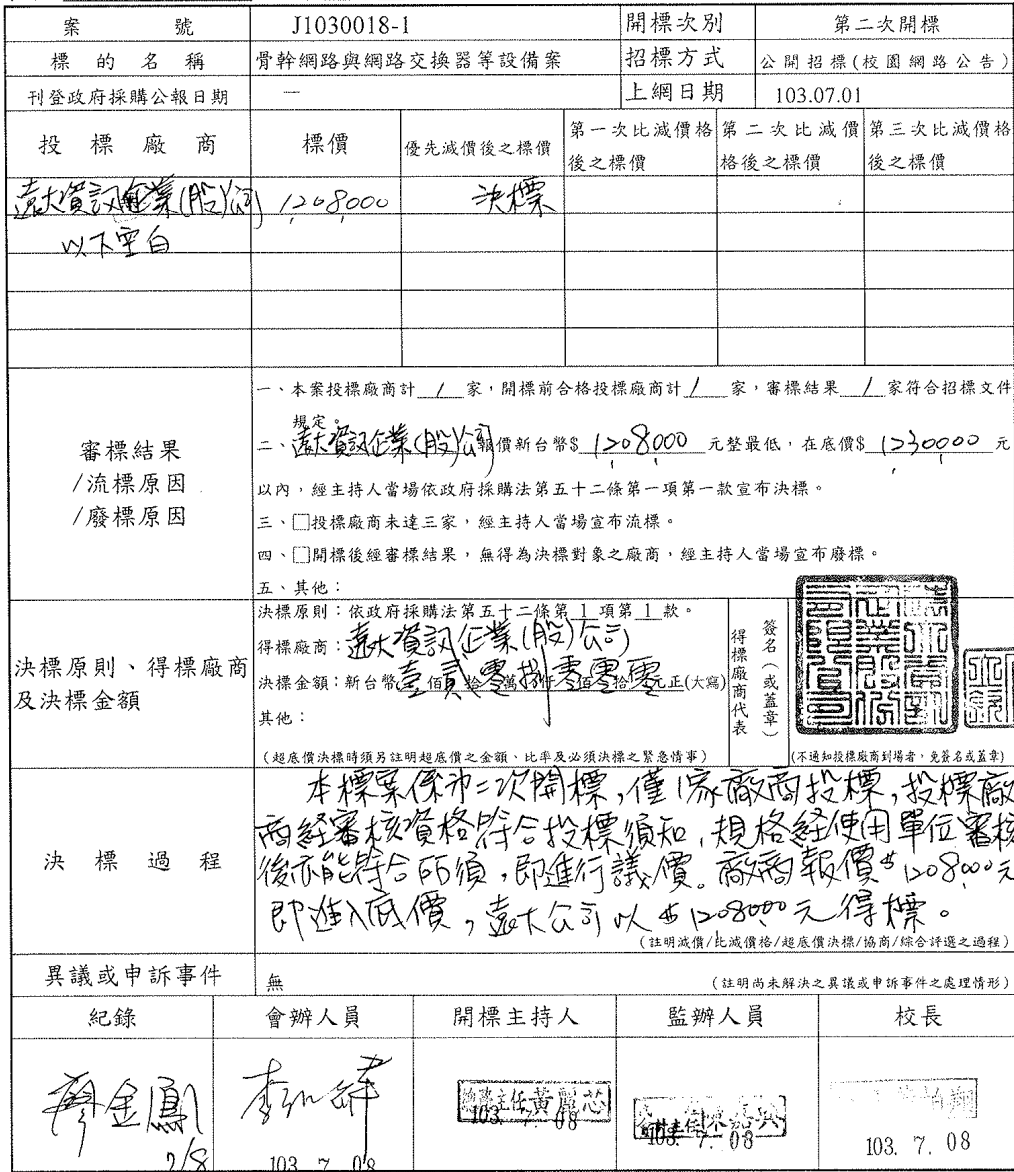 案號 J1030018-1 開標次別 第二次開標
標的名稱 骨幹網路與網路交換器等設備案 招標方式 公開招標(校園網路公告)
刊登政府採購公報日期 — 上網日期 103.07.01
投標廠商 標價 優先減價後之標價 第一次比減價格後之標價 第二次比減價格後之標價 第三次比減價格後之標價
遠大資訊企業(股)公司 1,208,000 決標
以下空白
審標結果
/流標原因
/廢標原因
一、本案投標廠商計 1 家,開標前合格投標廠商計 1 家,審標結果 1 家符合招標文件
規定。
二、遠大資訊企業(股)公司報價新台幣$ 1,208,000 元整最低,在底價$ 1,230,000 元
以內,經主持人當場依政府採購法第五十二條第一項第一款宣布決標。
三、□投標廠商未達三家,經主持人當場宣布流標。
四、□開標後經審標結果,無得為決標對象之廠商,經主持人當場宣布廢標。
五、其他:
決標原則、得標廠商
及決標金額
決標原則:依政府採購法第五十二條第 1 項第 1 款。
得標廠商:遠大資訊企業(股)公司
決標金額:新台幣壹佰貳拾零萬捌仟零佰零拾零元正(大寫)
其他:
(超底價決標時須另註明超底價之金額、比率及必須決標之緊急情事)
得標廠商代表
簽名(或蓋章)
(不通知投標廠商到場者,免簽名或蓋章)
決標過程
本標案係第二次開標,僅1家廠商投標,投標廠
商経審核資格符合投標須知,規格経使用單位審核
後亦能符合所須,即進行議價。廠商報價$1208000元
即進入底價,遠大公司以$1208000元得標。
(註明減價/比減價格/超底價決標/協商/綜合評選之過程)
異議或申訴事件 無 (註明尚未解決之異議或申訴事件之處理情形)
紀錄 會辦人員 開標主持人 監辦人員 校長
廖金鳳 主任黃麗芯
7/8 103. 7. 08 103. 7. 08 103. 7. 08 103. 7. 08